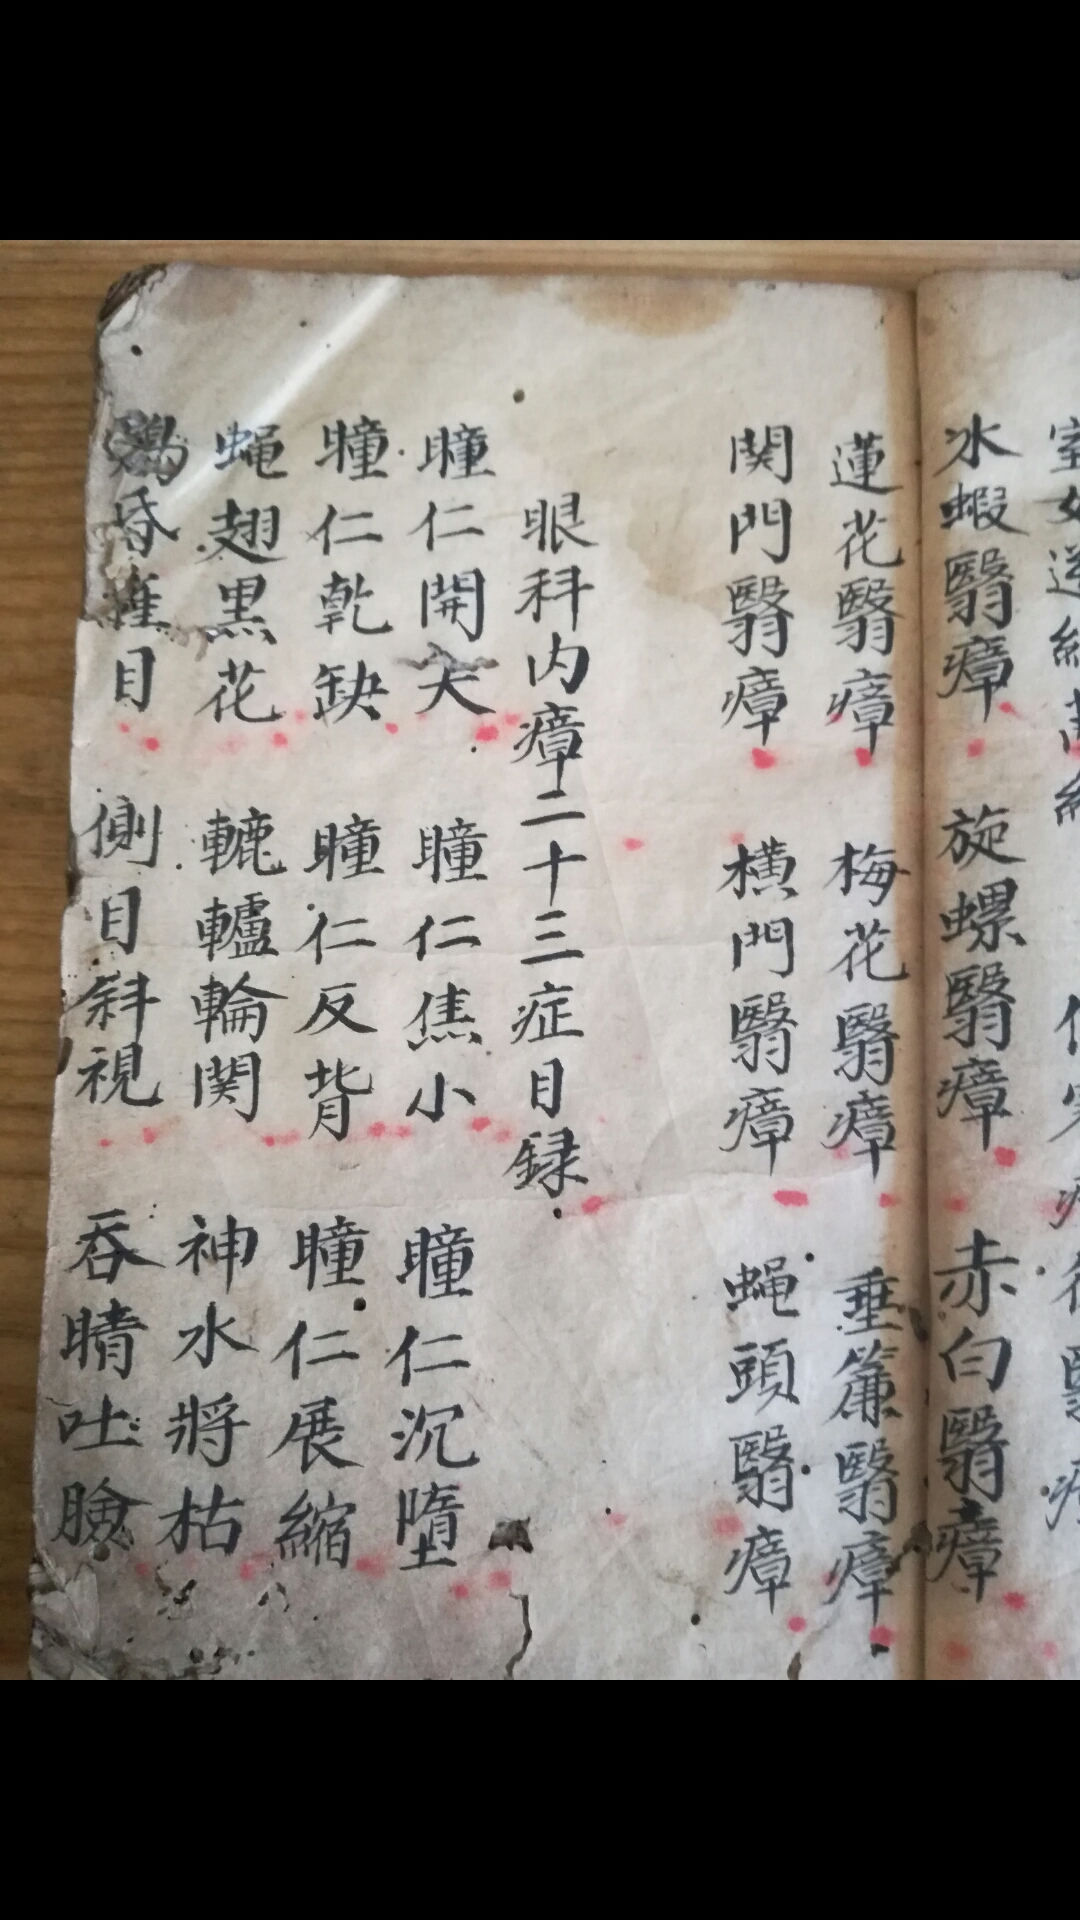 水蝦翳瘴 旋螺翳瘴 赤白翳瘴
蓮花翳瘴 梅花翳瘴 垂簾翳瘴
関門翳瘴 横門翳瘴 蝇頭翳瘴
眼科内瘴二十三症目録
瞳仁開大 瞳仁焦小 瞳仁沉墮
瞳仁乾缺 瞳仁反背 瞳仁展縮
蝇翅黒花 轆轤輪関 神水將枯
鷄昏雀目 側目斜視 吞睛吐臉